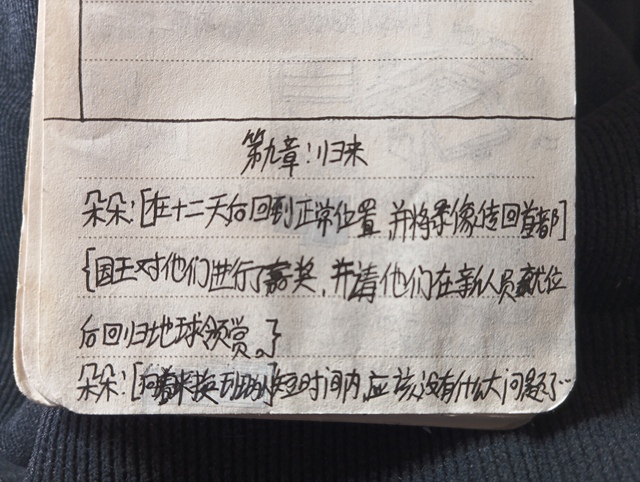 第九章:归来
朵朵:[在十二天后回到正常位置,并将录像传回首都]
{国王对他们进行了嘉奖,并请他们在新人员就位
后回归地球领赏。}
朵朵:[向着来换班的]短时间内,应该没有什么大问题了…